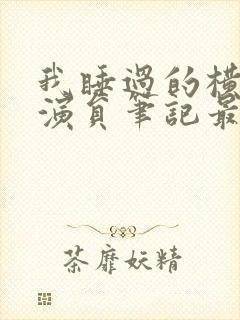 我睡過的橫
演員筆記最
荼靡妖精